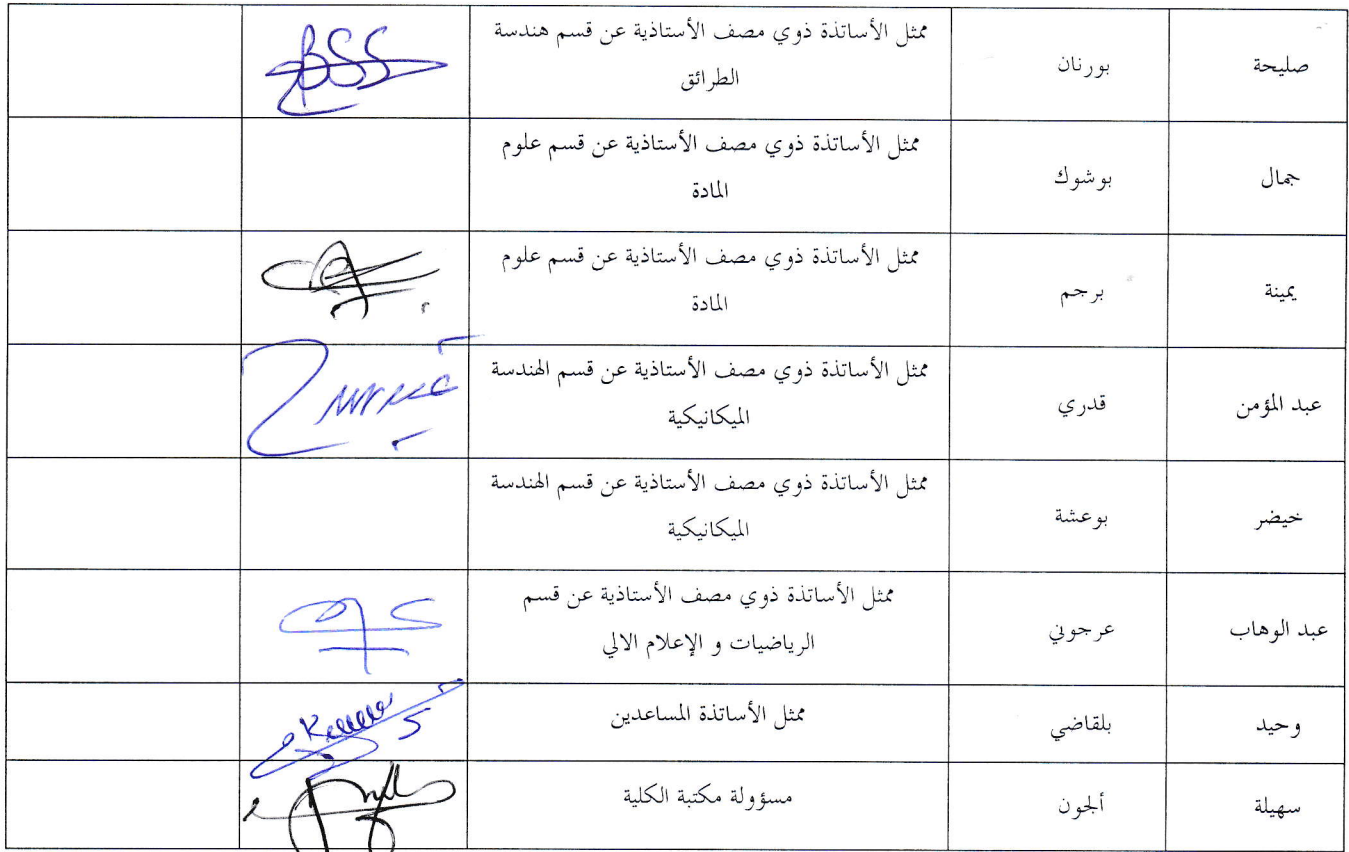 صليحة بورنان ممثل الأساتذة ذوي مصف الأستاذية عن قسم هندسة
الطرائق
جمال بوشوك ممثل الأساتذة ذوي مصف الأستاذية عن قسم علوم
المادة
يمينة برجم ممثل الأساتذة ذوي مصف الأستاذية عن قسم علوم
المادة
عبد المؤمن قدري ممثل الأساتذة ذوي مصف الأستاذية عن قسم الهندسة
الميكانيكية
خيضر بوعشة ممثل الأساتذة ذوي مصف الأستاذية عن قسم الهندسة
الميكانيكية
عبد الوهاب عرجوني ممثل الأساتذة ذوي مصف الأستاذية عن قسم
الرياضيات و الإعلام الالي
وحيد بلقاضي ممثل الأساتذة المساعدين
سهيلة ألجون مسؤولة مكتبة الكلية